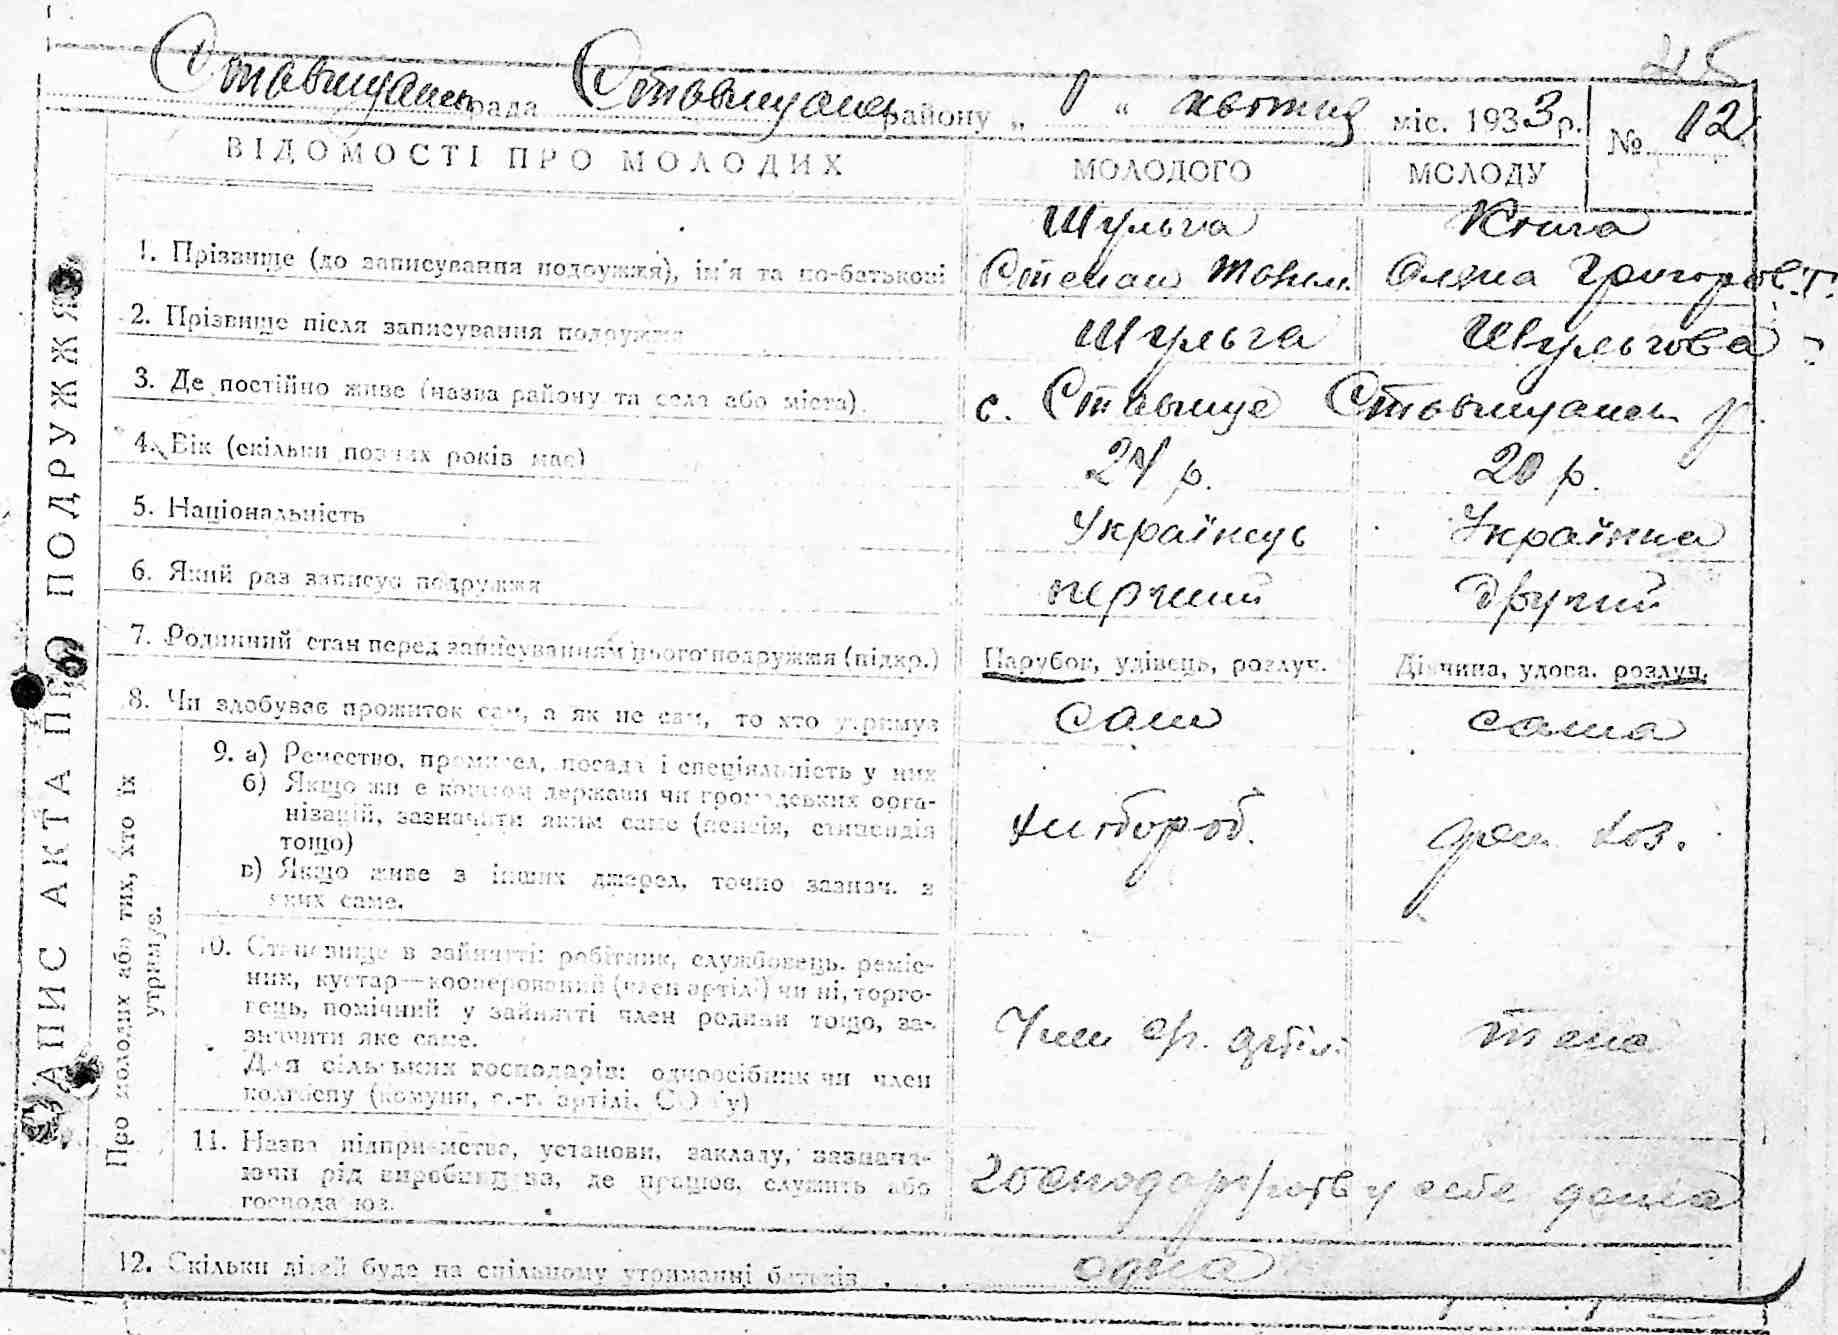 45
Ставищанська рада Ставищанськ району „ 1 “ квітня міс. 1933 р. № 12
ВІДОМОСТІ ПРО МОЛОДИХ МОЛОДОГО МОЛОДУ
Шульга Книга
1. Прізвище (до записування подружжя), ім'я та по-батькові Степан Оляна Григоров.
2. Прізвище після записування подружжя Шульга Шульгова
3. Де постійно живе (назва району та села або міста) с. Ставище Ставищанськ р.
4. Вік (скільки повних років має) 24 р. 20 р.
5. Національність Українець Українка
6. Який раз записує подружжя перший другий
7. Родинний стан перед записуванням цього подружжя (підкр.) Парубок, удівець, розлуч. Дівчина, удова, розлуч.
8. Чи здобуває прожиток сам, а як не сам, то хто утримує сам сама
9. а) Ремество, промисел, посада і спеціяльність у них
б) Якщо жив є коштом держави чи громадських орга-
нізацій, зазначити яким саме (пенсія, стипендія
тощо) хлібороб. дом. хоз.
в) Якщо живе з інших джерел, точно зазнач. з
яких саме.
10. Становище в зайнятті: робітник, службовець, реміс-
ник, кустар—кооперований (член артілі) чи ні, торго-
вець, помічний у зайнятті член родини тощо, за-
значити яке саме. Член с.г. артілі
Для сільських господарів: одноосібник чи член
колгоспу (комуни, с.-г. артілі, СОЗ'у)
11. Назва підприємства, установи, закладу, зазнача-
ючи рід виробництва, де працює, служить або у себе дома
господарює.
12. Скільки дітей буде на спільному утриманні батьків . . одна
ЗАПИС АКТА ПРО ПОДРУЖЖЯ
Про молодих або тих, хто їх
утримує.